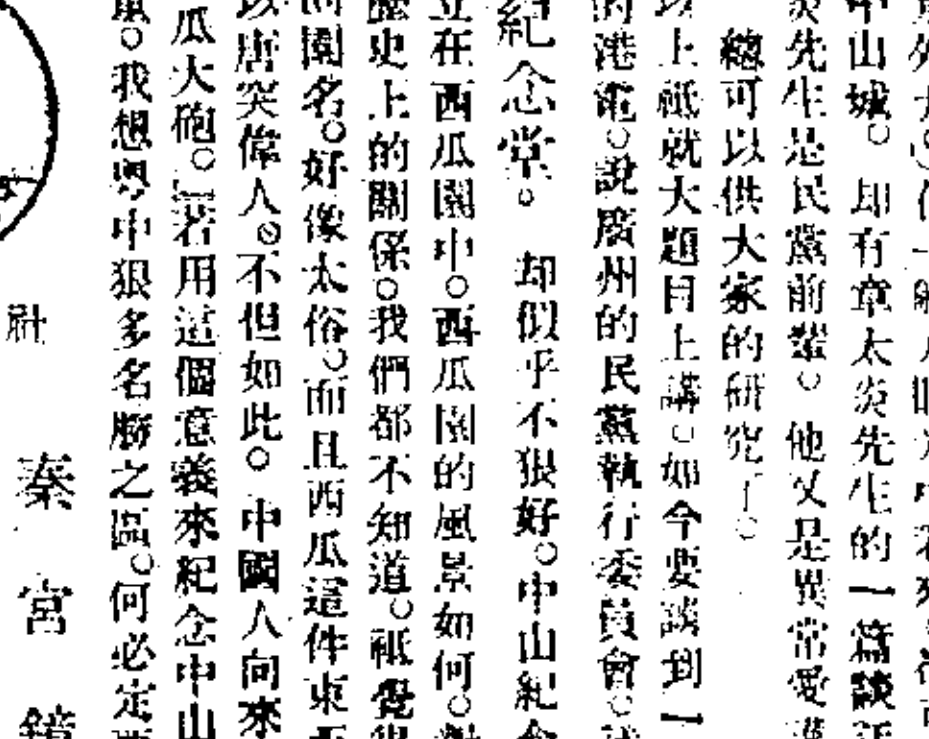 中山城。却有章太炎先生的一篇談話
炎先生是民黨前輩。他又是異常愛護
總可以供大家的研究了。
以上祇就大題目上講。如今要談到一
的港電。說廣州的民黨執行委員會。
紀念堂。却似乎不狠好。中山紀念
立在西瓜園中。西瓜園的風景如何。
歷史上的關係。我們都不知道。祇覺得
園名。好像太俗。而且西瓜這件東西
以唐突偉人。不但如此。中國人向來
瓜大砲。若用這個意義來紀念中山
我想粤中狠多名勝之區。何必定要
社
秦宮鏡